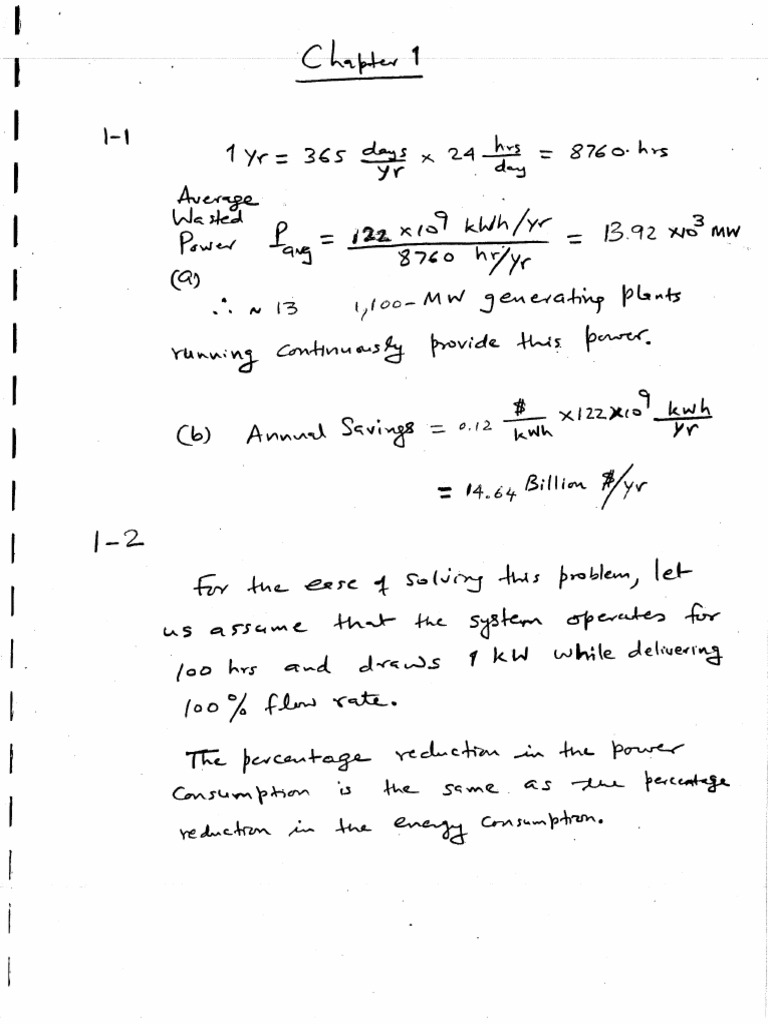 Chapter 1
1-1
1 Yr = 365 days/yr × 24 hrs/day = 8760. hrs
Average
Wasted
Power P_avg = 122 × 10^9 kWh/yr / 8760 hr/yr = 13.92 × 10^3 MW
(a)
∴ ~ 13 1,100-MW generating plants
running continuously provide this power.
(b) Annual Savings = 0.12 $/kWh × 122 × 10^9 kWh/yr
= 14.64 Billion $/yr
1-2
For the ease of solving this problem, let
us assume that the system operates for
100 hrs and draws 1 kW while delivering
100% flow rate.
The percentage reduction in the power
consumption is the same as the percentage
reduction in the energy consumption.